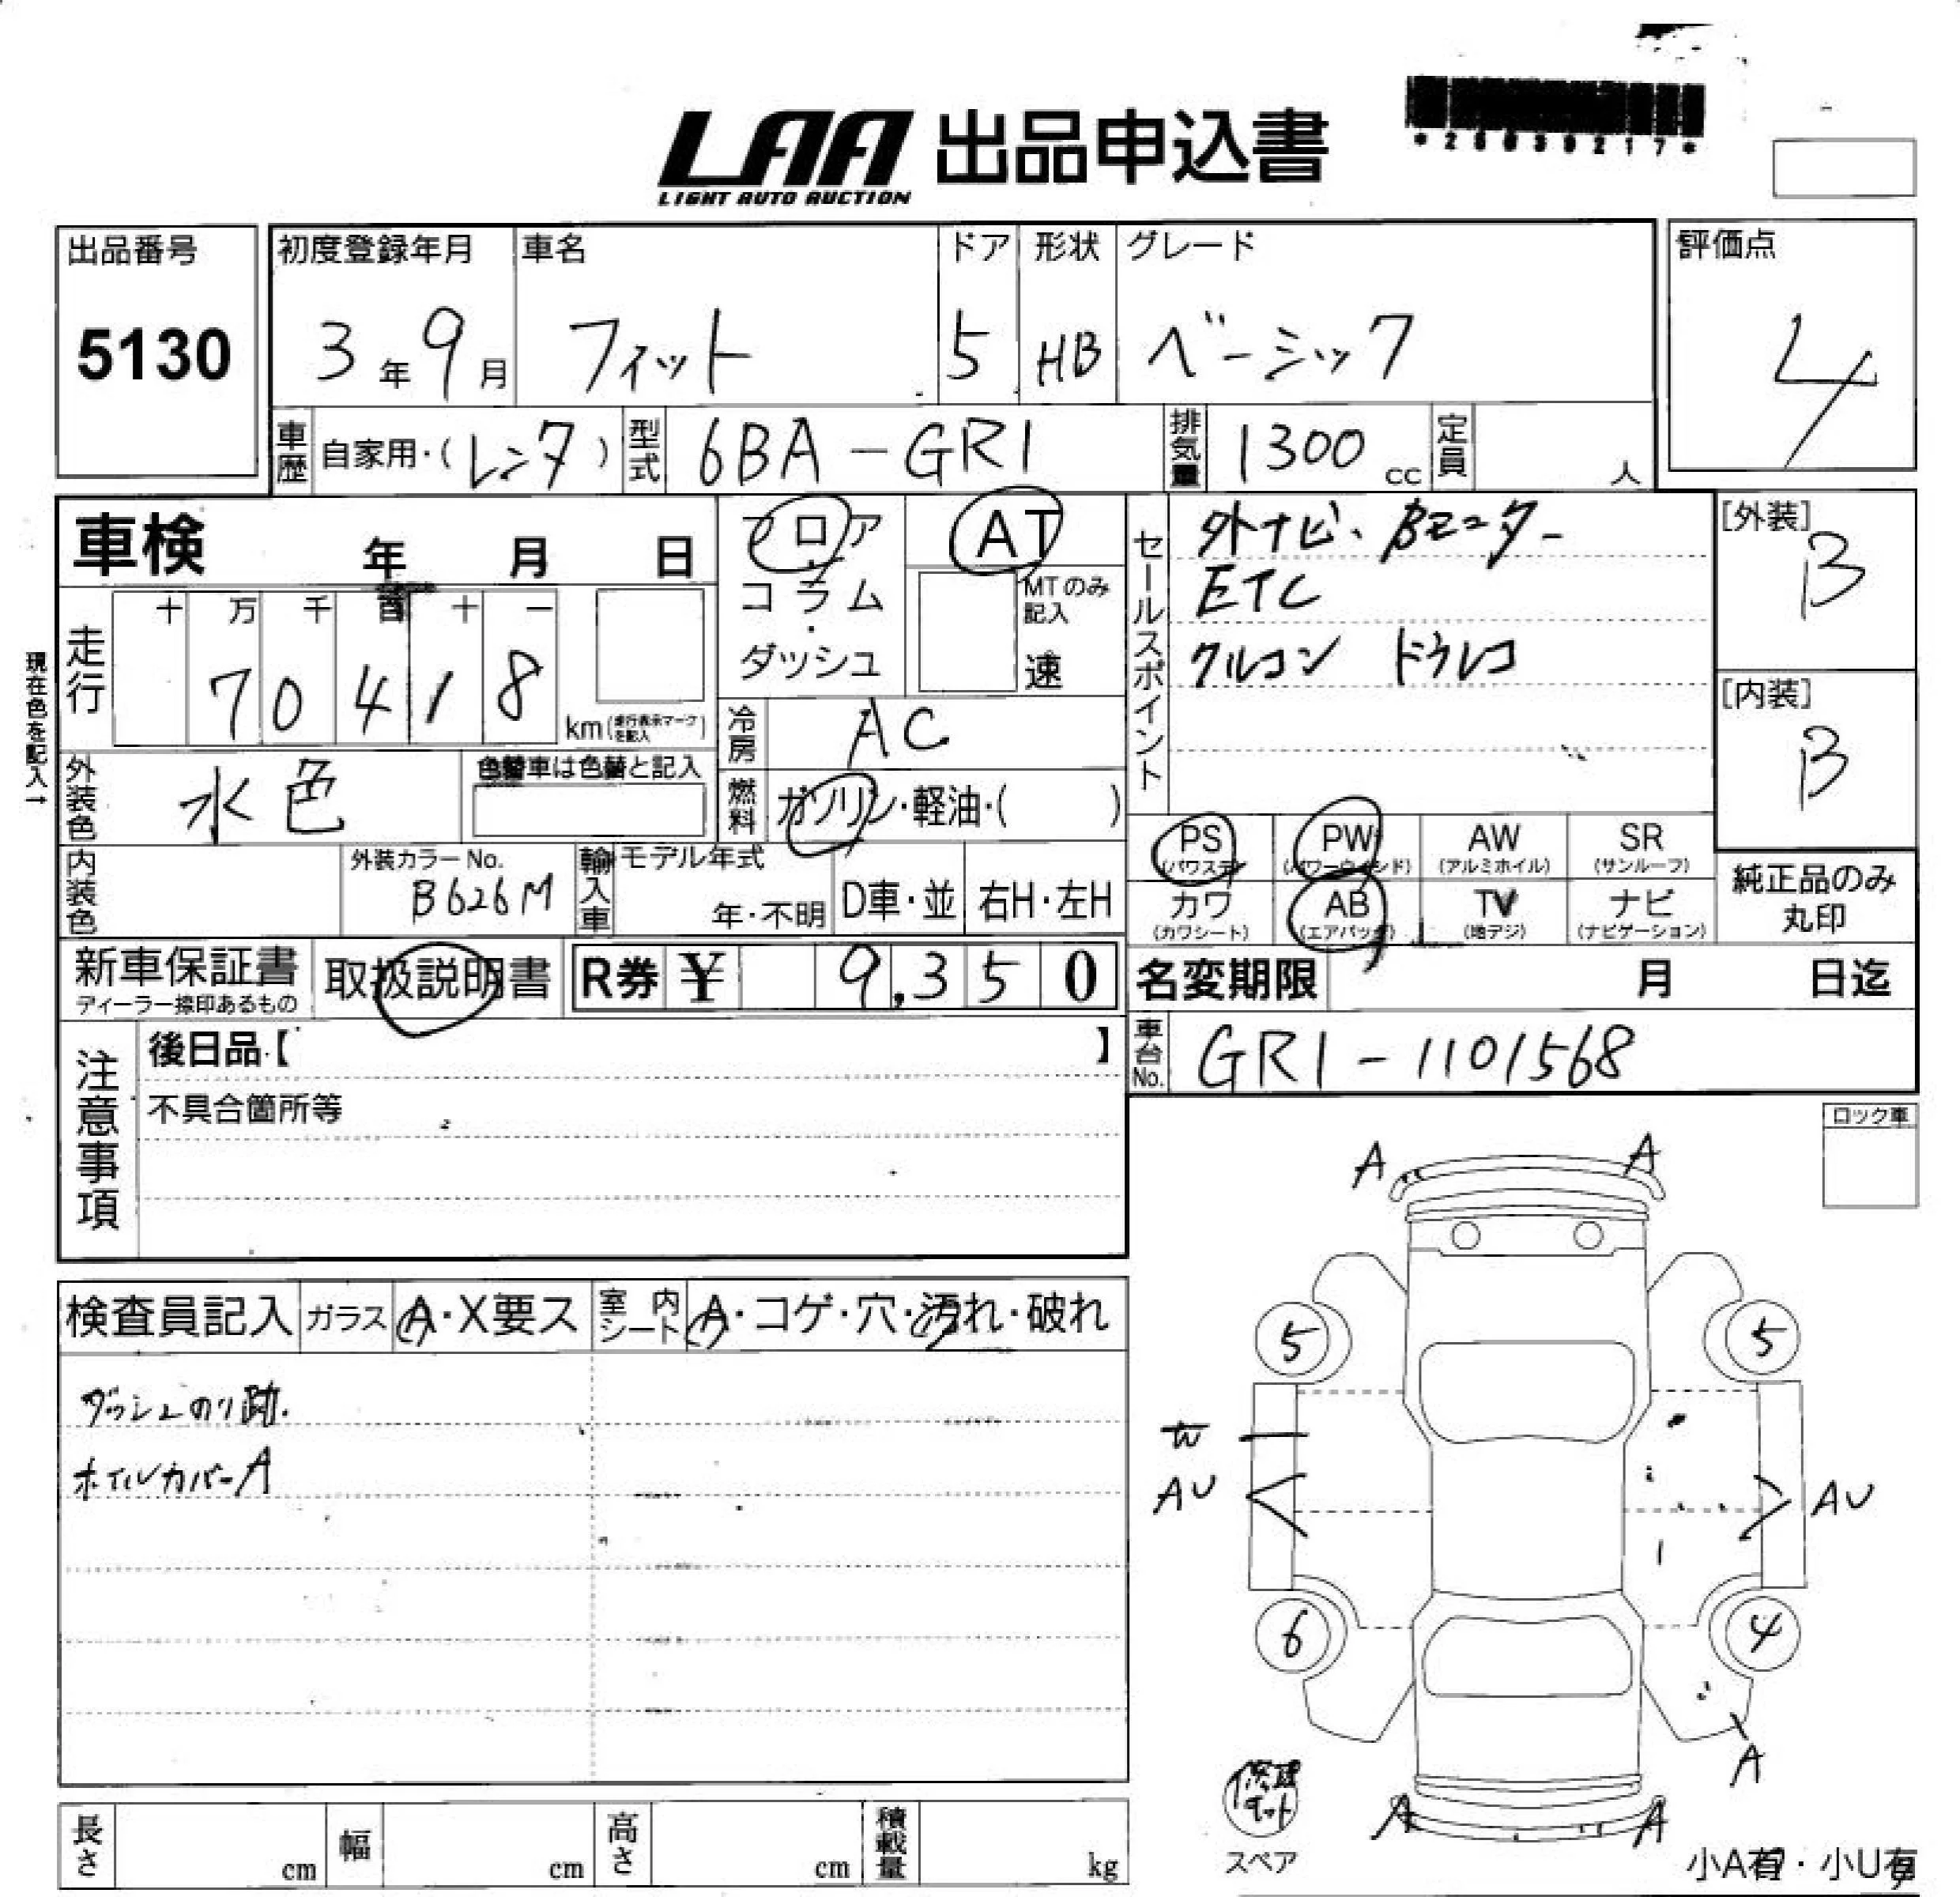 LAA 出品申込書
LIGHT AUTO AUCTION
出品番号 5130
初度登録年月 3年9月
車名 フィット
ドア 5
形状 HB
グレード ベーシック
評価点 4
車歴 自家用・(レンタ)
型式 6BA-GR1
排気量 1300cc
定員 人
車検 年 月 日
フロア
・
コラム
・
ダッシュ
AT
MTのみ記入
速
セールスポイント
外ナビ、Bモニター
ETC
クルコン ドラレコ
[外装] B
[内装] B
現在色を記入→
走行
十 万 千 百 十 一
7 0 4 1 8
km(走行表示マークを記入)
冷房 AC
燃料 ガソリン・軽油・( )
外装色 水色
色替車は色替と記入
内装色
外装カラーNo. B626M
輸入車 モデル年式 年・不明 D車・並 右H・左H
PS (パワステ)
PW (パワーウィンド)
AW (アルミホイル)
SR (サンルーフ)
カワ (カワシート)
AB (エアバッグ)
TV (地デジ)
ナビ (ナビゲーション)
純正品のみ丸印
新車保証書
ディーラー捺印あるもの
取扱説明書
R券 ¥ 9,350
名変期限 月 日迄
車台No. GR1-1101568
注意事項
後日品【 】
不具合箇所等
ロック車
検査員記入 ガラス A・X要ス 室内シート A・コゲ・穴・汚れ・破れ
ダッシュのり跡.
ホイルカバーA
A A
5 5
AU AU
6 4
A
A A
修理キット
スペア
小A有・小U有
長さ cm 幅 cm 高さ cm 積載量 kg